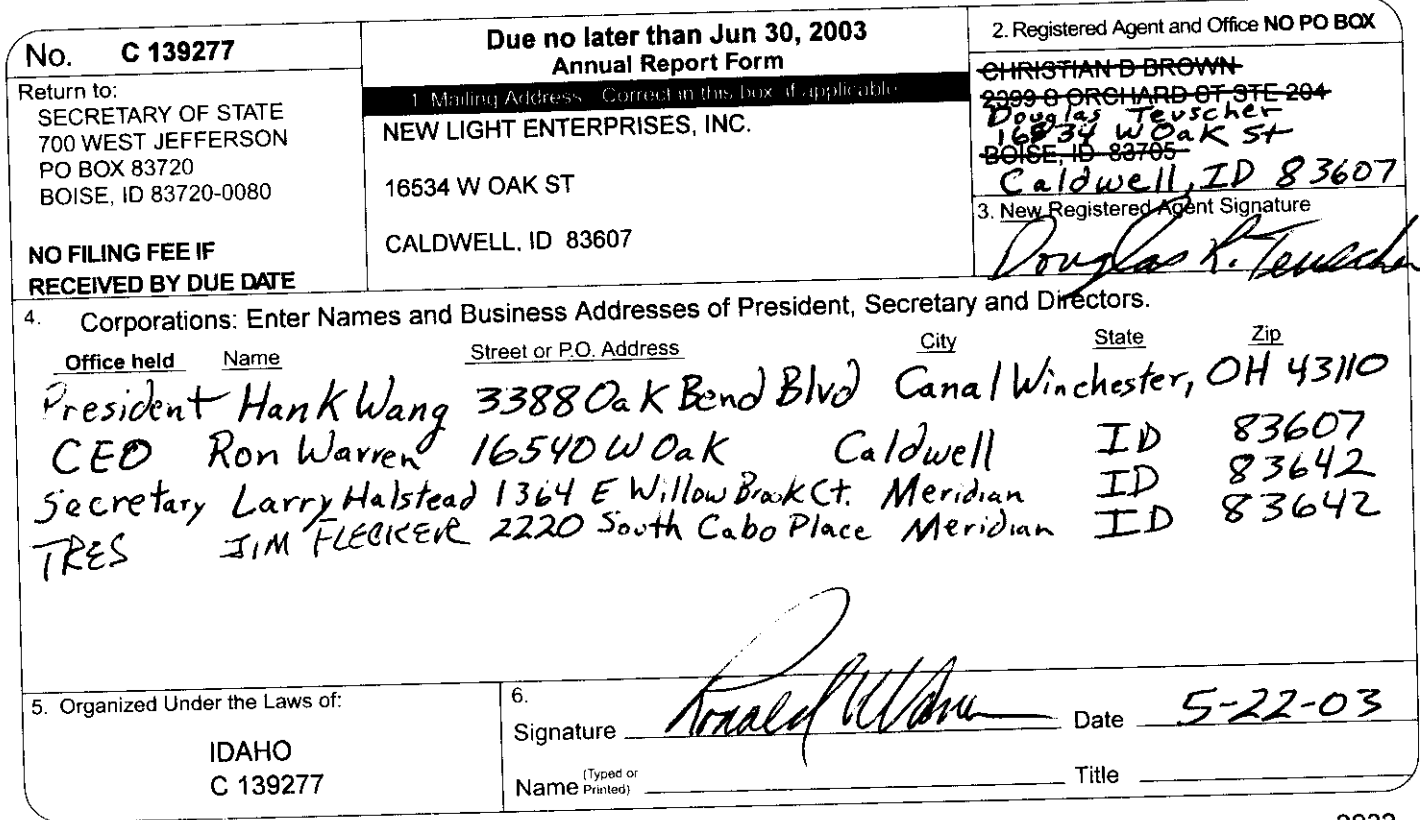 No. C 139277
Return to:
SECRETARY OF STATE
700 WEST JEFFERSON
PO BOX 83720
BOISE, ID 83720-0080
NO FILING FEE IF
RECEIVED BY DUE DATE
Due no later than Jun 30, 2003
Annual Report Form
1. Mailing Address. Correct in this box if applicable
NEW LIGHT ENTERPRISES, INC.
16534 W OAK ST
CALDWELL, ID 83607
2. Registered Agent and Office NO PO BOX
CHRISTIAN D BROWN
2399 S ORCHARD ST STE 204
Douglas Teuscher
16534 W Oak St
BOISE, ID 83705
Caldwell, ID 83607
3. New Registered Agent Signature
Douglas R. Teuscher
4. Corporations: Enter Names and Business Addresses of President, Secretary and Directors.
Office held Name Street or P.O. Address City State Zip
President Hank Wang 3388 Oak Bend Blvd Canal Winchester, OH 43110
CEO Ron Warren 16540 W Oak Caldwell ID 83607
Secretary Larry Halstead 1364 E Willow Brook Ct. Meridian ID 83642
TRES JIM FLECKER 2220 South Cabo Place Meridian ID 83642
5. Organized Under the Laws of:
IDAHO
C 139277
6.
Signature Ronald Date 5-22-03
Name (Typed or Printed) Title